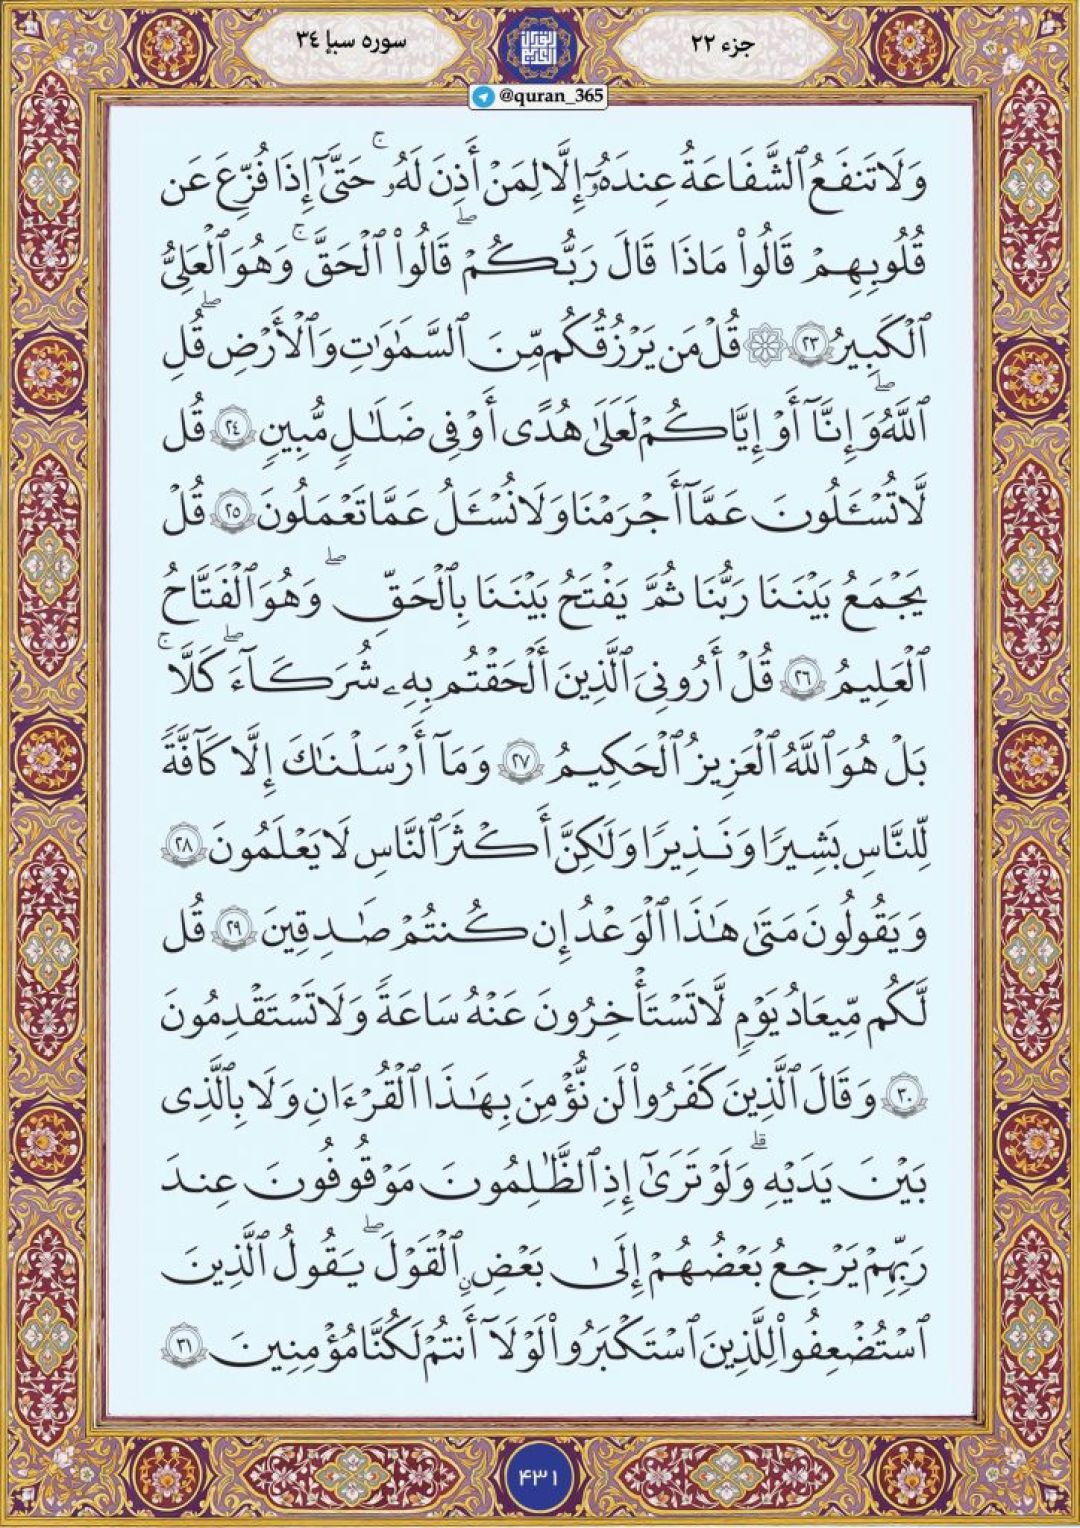 جزء ۲۲
سوره سبإ ۳۴
@quran_365
وَلَا تَنفَعُ ٱلشَّفَٰعَةُ عِندَهُۥٓ إِلَّا لِمَنْ أَذِنَ لَهُۥۚ حَتَّىٰٓ إِذَا فُزِّعَ عَن
قُلُوبِهِمْ قَالُوا۟ مَاذَا قَالَ رَبُّكُمْۖ قَالُوا۟ ٱلْحَقَّۚ وَهُوَ ٱلْعَلِىُّ
ٱلْكَبِيرُ ٢٣ ۞ قُلْ مَن يَرْزُقُكُم مِّنَ ٱلسَّمَٰوَٰتِ وَٱلْأَرْضِۖ قُلِ
ٱللَّهُۖ وَإِنَّآ أَوْ إِيَّاكُمْ لَعَلَىٰ هُدًى أَوْ فِى ضَلَٰلٍ مُّبِينٍ ٢٤ قُل
لَّا تُسْـَٔلُونَ عَمَّآ أَجْرَمْنَا وَلَا نُسْـَٔلُ عَمَّا تَعْمَلُونَ ٢٥ قُلْ
يَجْمَعُ بَيْنَنَا رَبُّنَا ثُمَّ يَفْتَحُ بَيْنَنَا بِٱلْحَقِّۖ وَهُوَ ٱلْفَتَّاحُ
ٱلْعَلِيمُ ٢٦ قُلْ أَرُونِىَ ٱلَّذِينَ أَلْحَقْتُم بِهِۦ شُرَكَآءَۖ كَلَّاۚ
بَلْ هُوَ ٱللَّهُ ٱلْعَزِيزُ ٱلْحَكِيمُ ٢٧ وَمَآ أَرْسَلْنَٰكَ إِلَّا كَآفَّةً
لِّلنَّاسِ بَشِيرًا وَنَذِيرًا وَلَٰكِنَّ أَكْثَرَ ٱلنَّاسِ لَا يَعْلَمُونَ ٢٨
وَيَقُولُونَ مَتَىٰ هَٰذَا ٱلْوَعْدُ إِن كُنتُمْ صَٰدِقِينَ ٢٩ قُل
لَّكُم مِّيعَادُ يَوْمٍ لَّا تَسْتَـْٔخِرُونَ عَنْهُ سَاعَةً وَلَا تَسْتَقْدِمُونَ
٣٠ وَقَالَ ٱلَّذِينَ كَفَرُوا۟ لَن نُّؤْمِنَ بِهَٰذَا ٱلْقُرْءَانِ وَلَا بِٱلَّذِى
بَيْنَ يَدَيْهِۗ وَلَوْ تَرَىٰٓ إِذِ ٱلظَّٰلِمُونَ مَوْقُوفُونَ عِندَ
رَبِّهِمْ يَرْجِعُ بَعْضُهُمْ إِلَىٰ بَعْضٍ ٱلْقَوْلَۖ يَقُولُ ٱلَّذِينَ
ٱسْتُضْعِفُوا۟ لِلَّذِينَ ٱسْتَكْبَرُوا۟ لَوْلَآ أَنتُمْ لَكُنَّا مُؤْمِنِينَ ٣١
۴۳۱